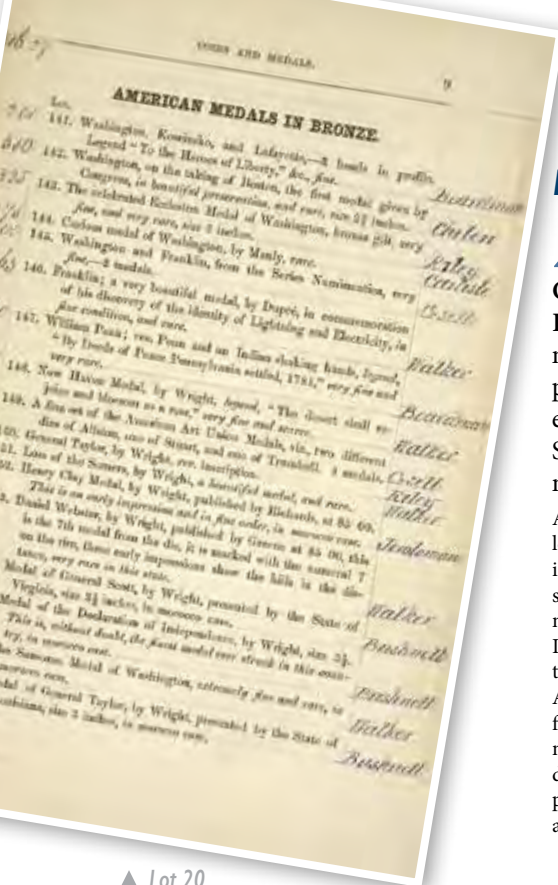 COINS AND MEDALS.
9
AMERICAN MEDALS IN BRONZE.
Lot.
141. Washington, Kosciusko, and Lafayette,—3 heads in profile.
Legend "To the Heroes of Liberty," &c., fine.
142. Washington, on the taking of Boston, the first medal given by
Congress, in beautiful preservation, and rare, size 2¾ inches.
143. The celebrated Eccleston Medal of Washington, bronze gilt, very
fine, and very rare, size 3 inches.
144. Curious medal of Washington, by Manly, rare.
145. Washington and Franklin, from the Series Numismatica, very
fine,—2 medals.
146. Franklin; a very beautiful medal, by Dupré, in commemoration
of his discovery of the identity of Lightning and Electricity, in
fine condition, and rare.
147. William Penn; rev. Penn and an Indian shaking hands, legend,
"By Deeds of Peace Pennsylvania settled, 1781," very fine and
very rare.
148. New Haven Medal, by Wright, legend, "The desert shall re-
joice and blossom as a rose," very fine and scarce.
149. A fine set of the American Art Union Medals, viz., two different
dies of Allston, one of Stuart, and one of Trumbull. 4 medals.
150. General Taylor, by Wright, rev. inscription.
151. Loss of the Somers, by Wright, a beautiful medal, and rare.
152. Henry Clay Medal, by Wright, published by Richards, at $5 00.
This is an early impression and in fine order, in morocco case.
Daniel Webster, by Wright, published by Green at $5 00, this
is the 7th medal from the die, it is marked with the numeral 7
on the rim, these early impressions show the hills in the dis-
tance, very rare in this state.
Medal of General Scott, by Wright, presented by the State of
Virginia, size 3½ inches, in morocco case.
Medal of the Declaration of Independence, by Wright, size 3½.
This is, without doubt, the finest medal ever struck in this coun-
try, in morocco case.
Sansom Medal of Washington, extremely fine and rare, in
morocco case.
General Taylor, by Wright, presented by the State of
Louisiana, size 3 inches, in morocco case.
Boardman
Riley
Cogan
Walker
Boardman
Walker
Riley
Walker
Walker
Bushnell
Bushnell
Walker
Bushnell
▲ Lot 20